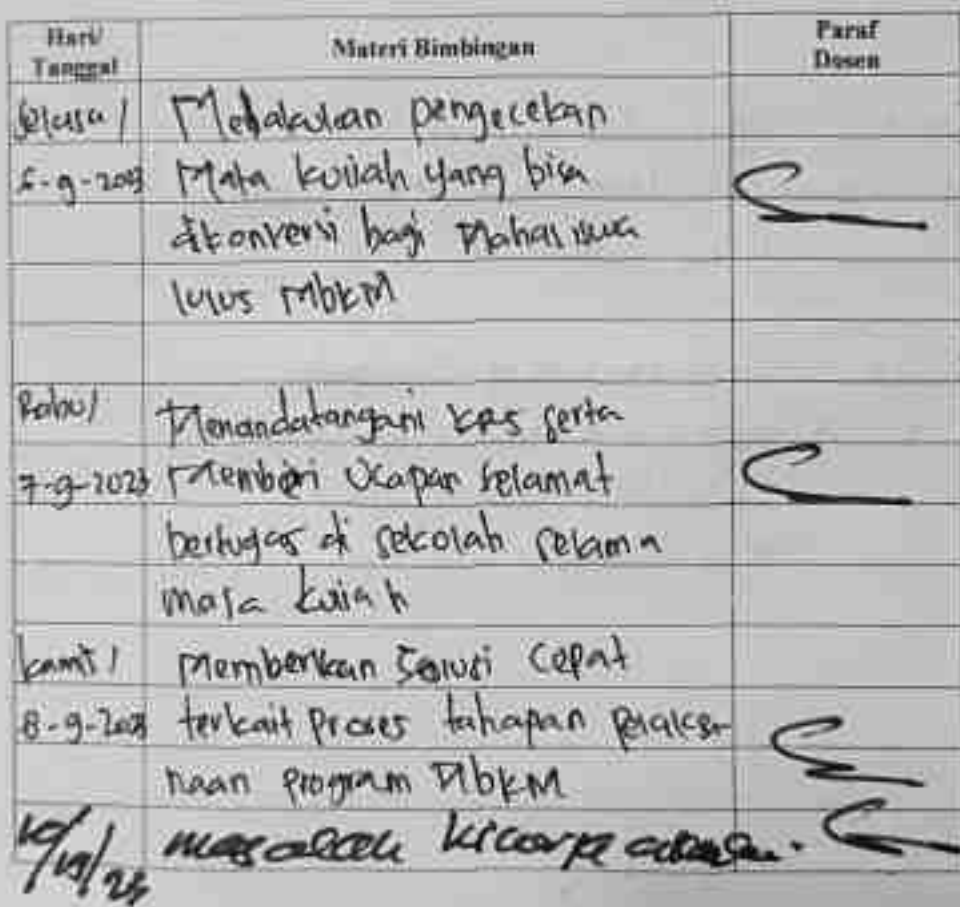 Hari/ Tanggal Materi Bimbingan Paraf Dosen
Selasa / Melakukan pengecekan
5-9-2023 Mata kuliah yang bisa
dikonversi bagi Mahasiswa
lulus MbKM
Rabu/ Menandatangani KRS serta
7-9-2023 Memberi Ucapan selamat
bertugas di sekolah selama
masa kuliah
kamis / Memberikan Solusi Cepat
8-9-2023 terkait Proses tahapan Pelaksa-
naan program MbKM
masalah